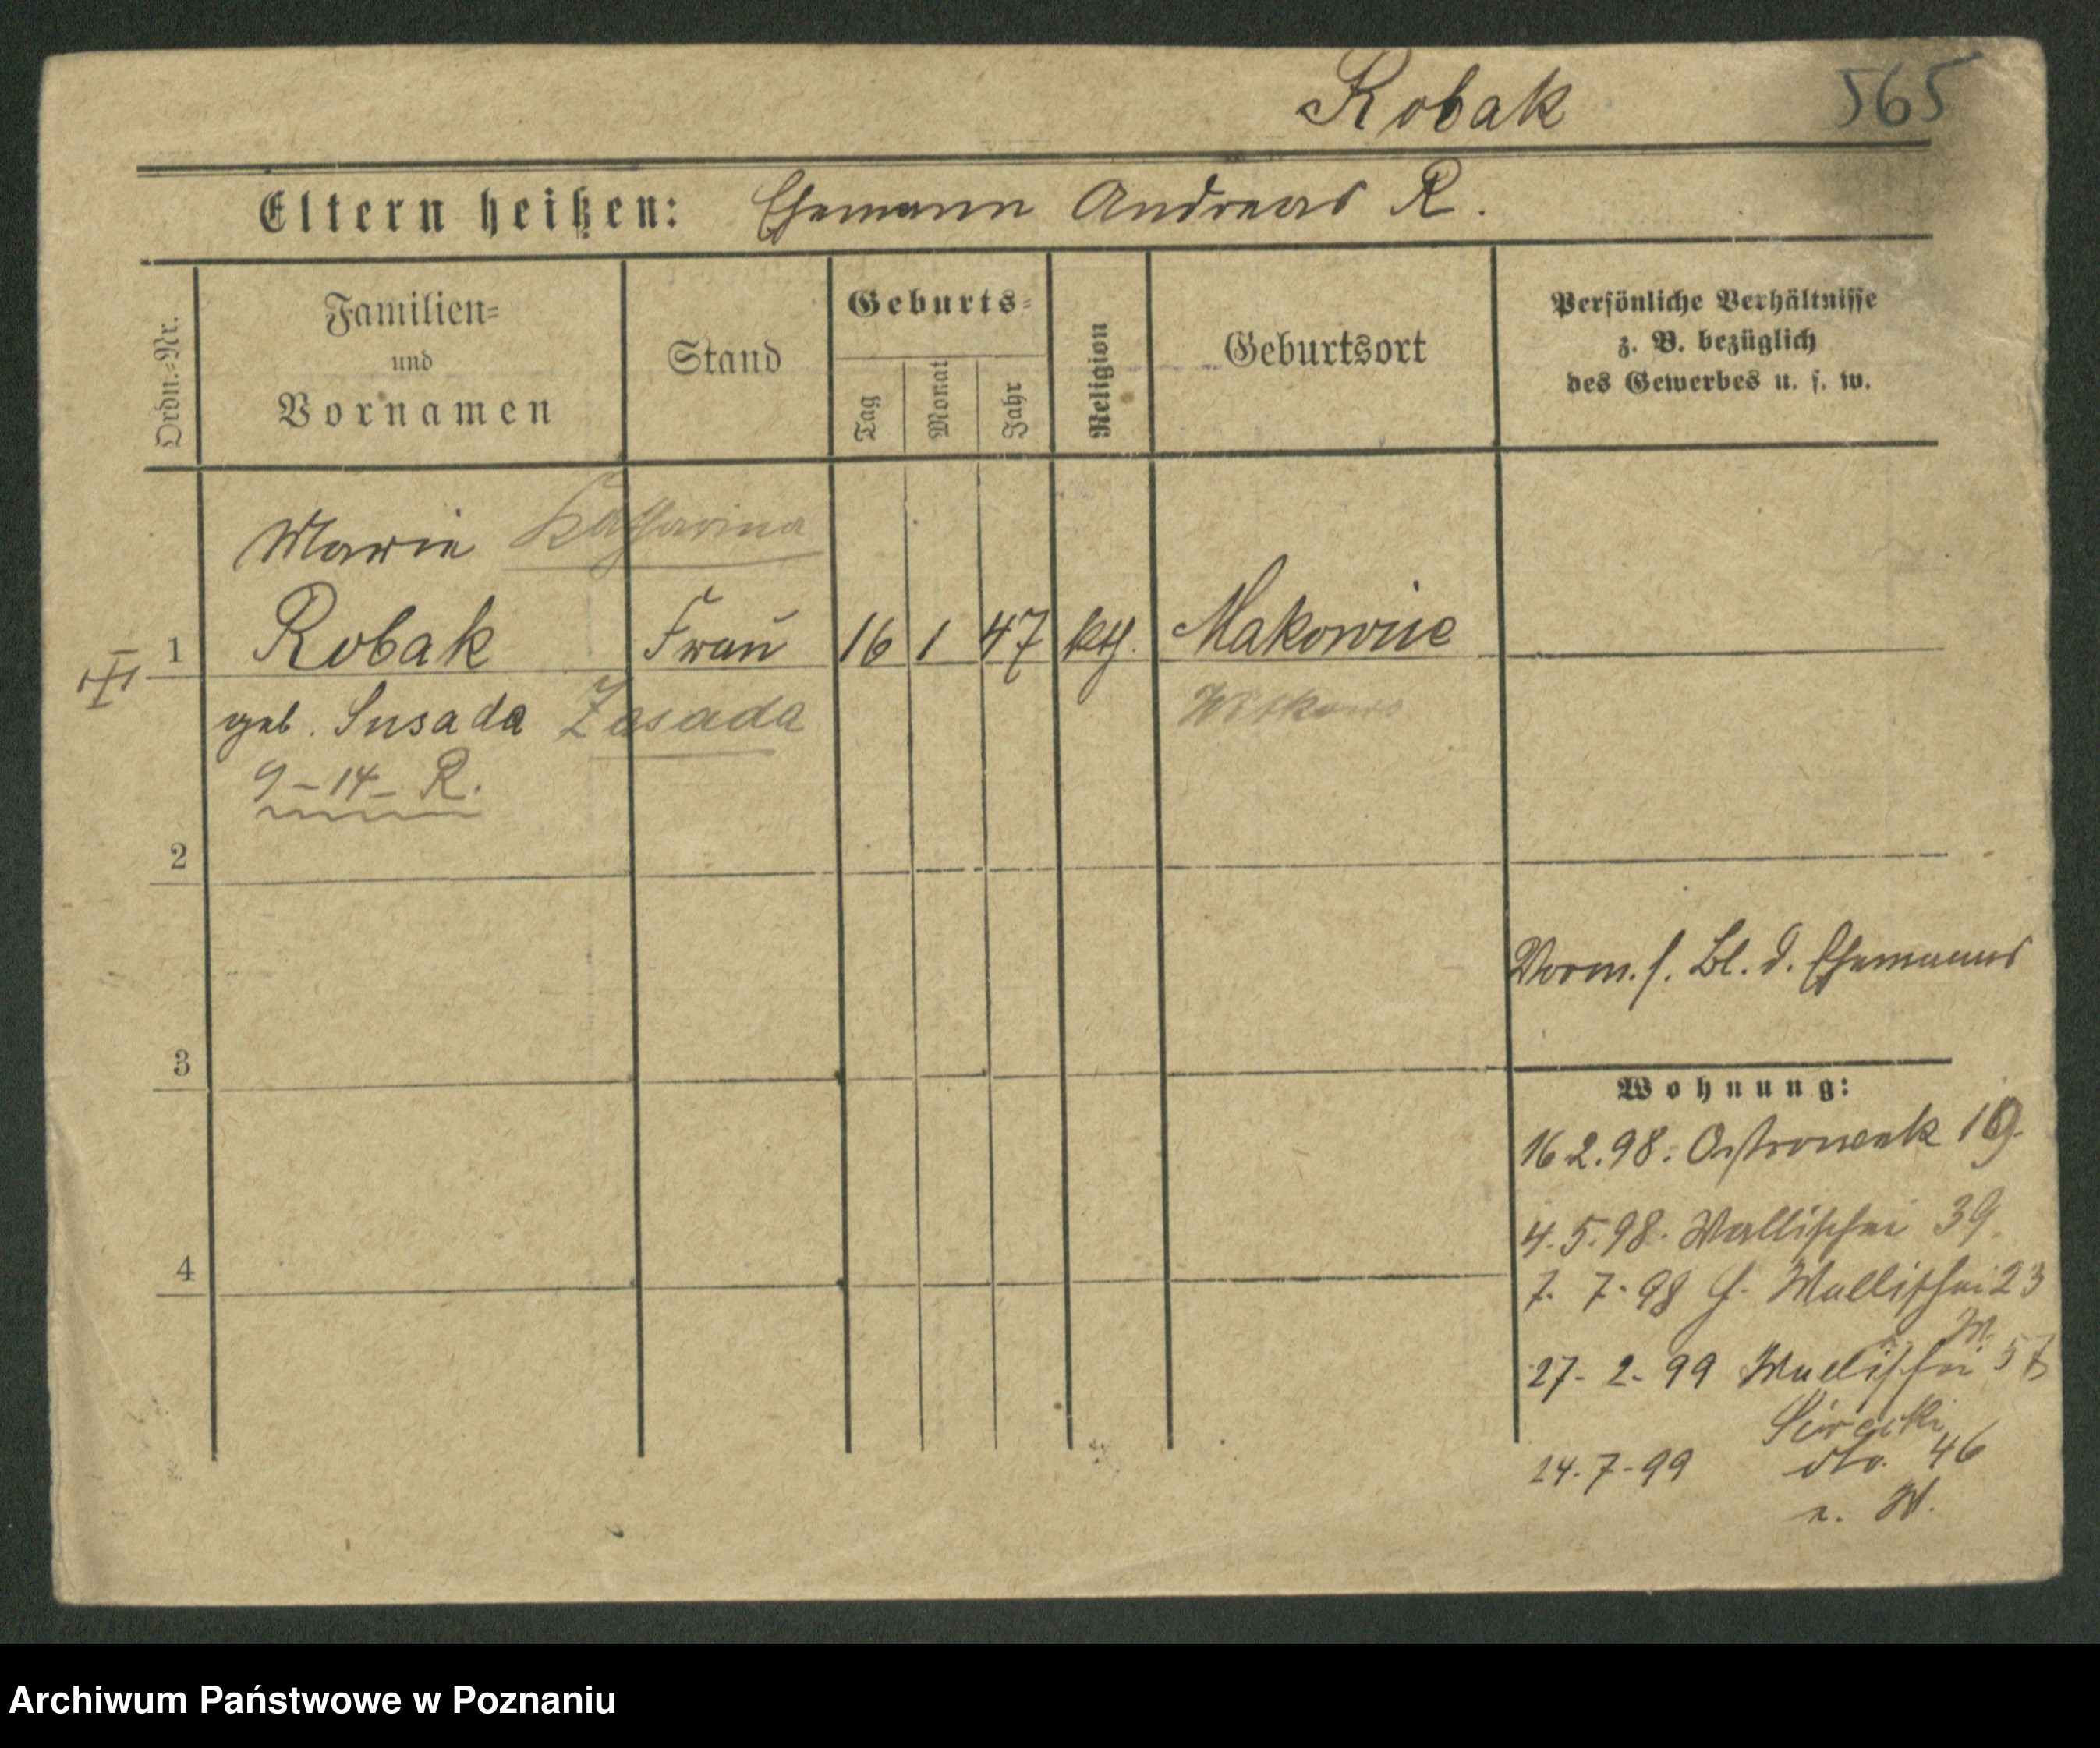 Robak 565
Eltern heißen: Ehemann Andreas R.
Ordn.=Nr.
Familien=
und
Vornamen
Stand
Geburts=
Tag
Monat
Jahr
Religion
Geburtsort
Persönliche Verhältnisse
z. B. bezüglich
des Gewerbes u. s. w.
Marie Katharina
1 Robak Frau 16 1 47 kth. Makowice
geb. Susada Zasada Witkowo
9-14- R.
2
Vorm. s. Bl. d. Ehemanns
3
Wohnung:
16.2.98. Ostrowek 19.
4.5.98. Wallischei 39.
4
7. 7. 98 Wallischei 23
W.
27. 2. 99 Wallischei
24. 7. 99 dto. 46
W.
Archiwum Państwowe w Poznaniu